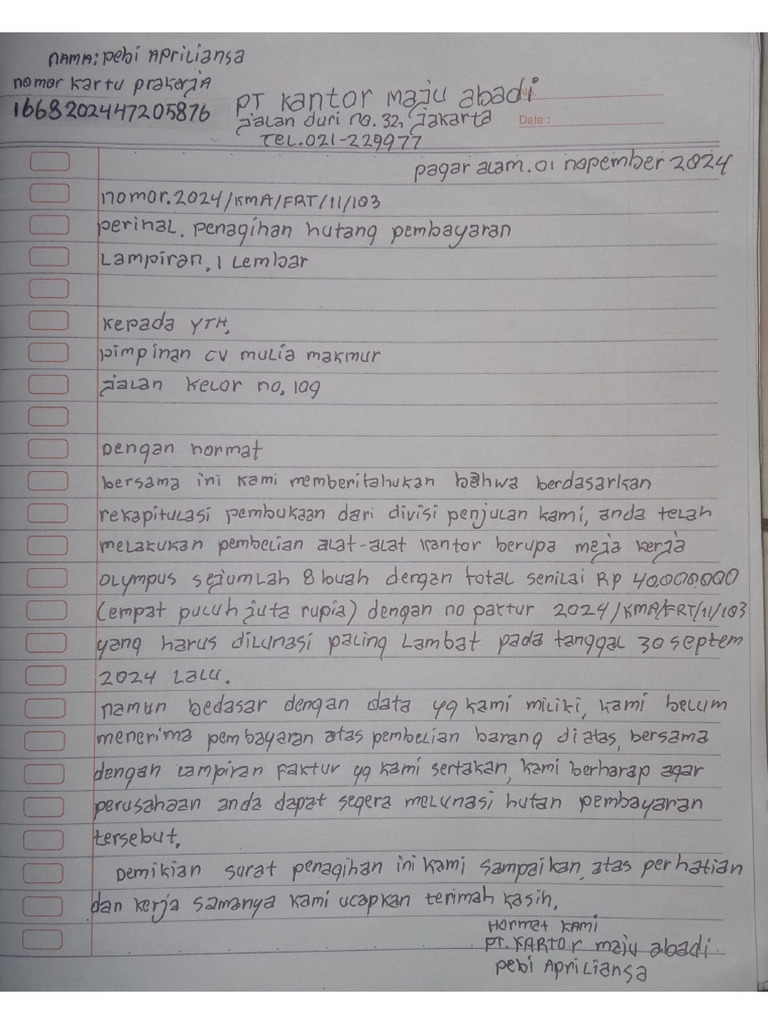 NAMA: pebi APriLiansa
nomor kartu prakerja
1668202447205876
PT Kantor maju abadi
No.
jalan duri no. 32, jakarta
Date :
TEL.021-229977
pagar alam. 01 nopember 2024
nomor. 2024/KMA/FRT/11/103
perihal. penagihan hutang pembayaran
Lampiran, 1 Lembar
kepada YTH.
pimpinan CV mulia makmur
jalan kelor no, 109
Dengan hormat
bersama ini kami memberitahukan bahwa berdasarkan
rekapitulasi pembukaan dari divisi penjulan kami, anda telah
melakukan pembelian alat-alat kantor berupa meja kerja
OLympus sejumlah 8 buah dengan total senilai Rp 40.000.000
(empat puluh juta rupia) dengan no paktur 2024/KMA/FRT/11/103
yang harus dilunasi paling lambat pada tanggal 30 septem
2024 Lalu.
namun bedasar dengan data yg kami miliki, kami belum
menerima pembayaran atas pembelian barang diatas, bersama
dengan Lampiran faktur yg kami sertakan, kami berharap agar
perusahaan anda dapat segera melunasi hutan pembayaran
tersebut.
Demikian surat penagihan ini kami sampaikan, atas perhatian
dan kerja samanya kami ucapkan terimah kasih.
Hormat kami
PT. KARTOr maju abadi
pebi APriLiansa